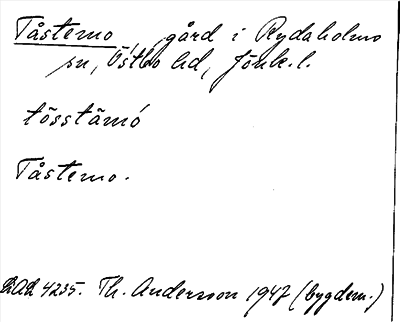 Tåstemo, gård i Rydaholms
sn, Östbo hd, Jönk.l.
tåsstämó
Tåstemo.
4235. Th. Andersson 1947 (bygdem.)